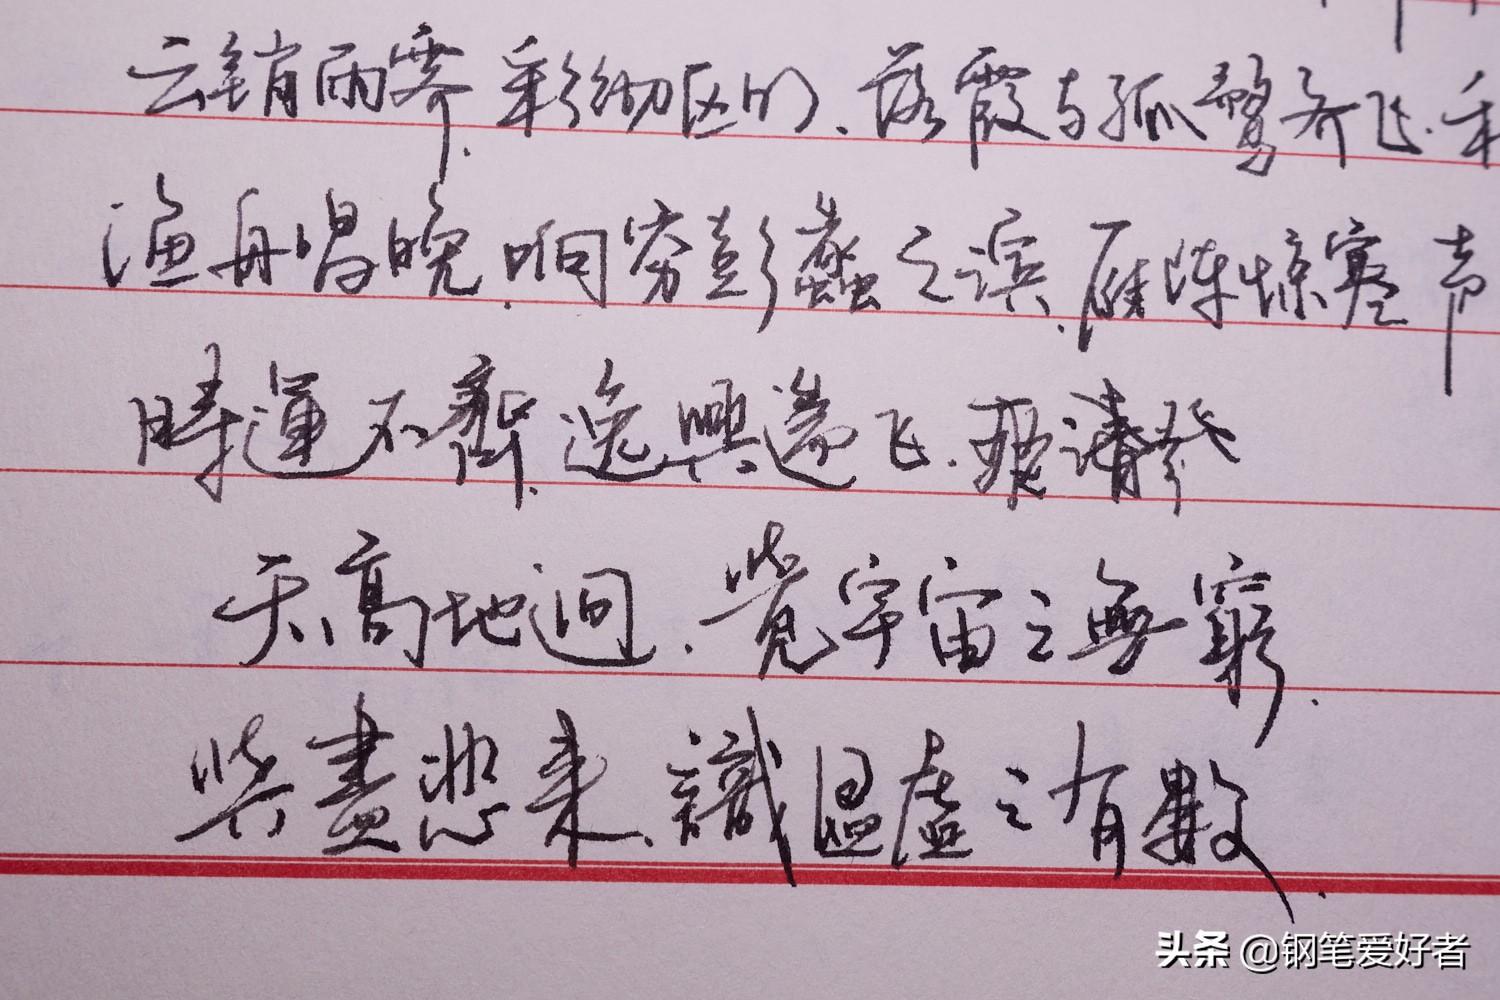 云销雨霁.彩彻区明.落霞与孤鹜齐飞.秋
渔舟唱晚.响穷彭蠡之滨.雁阵惊寒 声
時運不齊.逸興遄飞.爽籁發
天高地迥.覺宇宙之無窮.
興盡悲来.識盈虚之有數.
头条 @钢笔爱好者